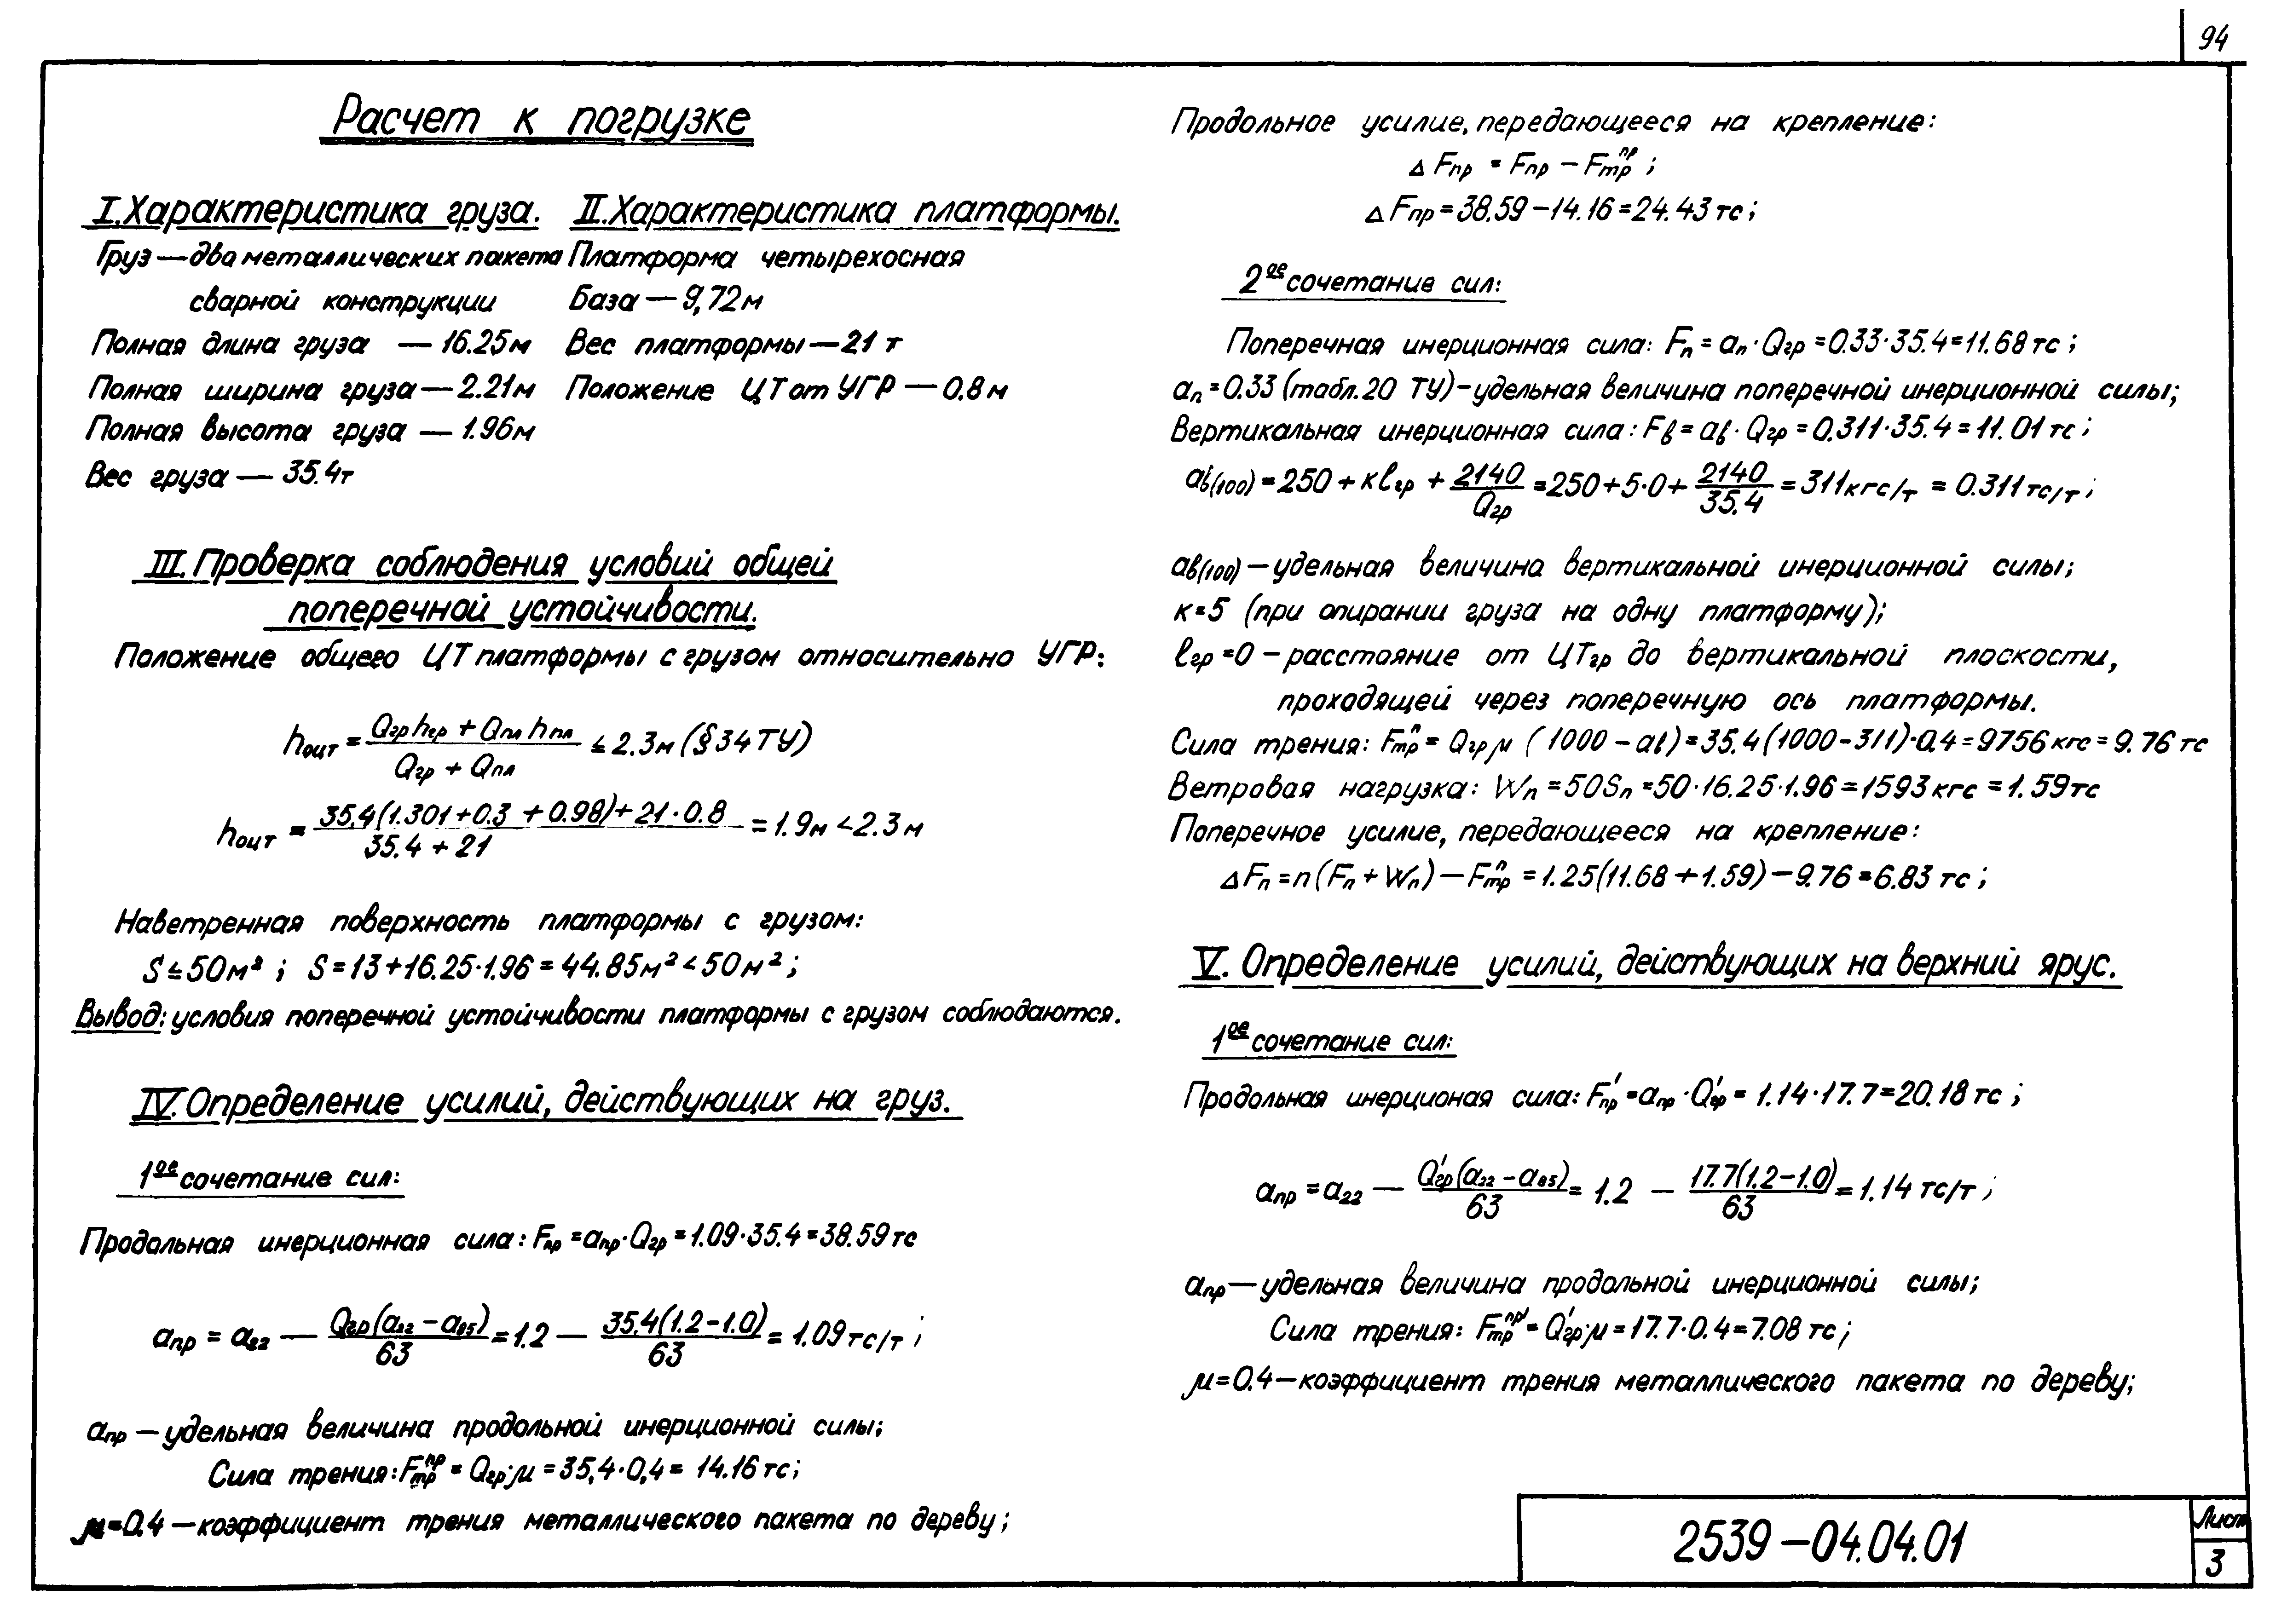 94
Расчет к погрузке
I. Характеристика груза.
Груз — два металлических пакета
сварной конструкции
Полная длина груза — 16.25м
Полная ширина груза — 2.21м
Полная высота груза — 1.96м
Вес груза — 35.4т
II. Характеристика платформы.
Платформа четырехосная
База — 9,72м
Вес платформы — 21 т
Положение ЦТ от УГР — 0.8 м
III. Проверка соблюдения условий общей
поперечной устойчивости.
Положение общего ЦТ платформы с грузом относительно УГР:
hоцт = (Qгр hгр + Qпл hпл) / (Qгр + Qпл) ≤ 2.3м (§34 ТУ)
hоцт = (35.4(1.301+0.3 + 0.98)+21·0.8) / (35.4 + 21) = 1.9м < 2.3 м
Наветренная поверхность платформы с грузом:
S ≤ 50м² ; S = 13+16.25·1.96 = 44.85м² < 50м² ;
Вывод: условия поперечной устойчивости платформы с грузом соблюдаются.
IV. Определение усилий, действующих на груз.
1ое сочетание сил:
Продольная инерционная сила: Fпр = aпр·Qгр = 1.09·35.4 = 38.59 тс
aпр = a22 — Qгр(a22 – a85)/63 = 1.2 — 35.4(1.2–1.0)/63 = 1.09 тс/т ;
aпр — удельная величина продольной инерционной силы;
Сила трения: Fтр^пр = Qгр·μ = 35,4·0,4 = 14.16 тс;
μ = 0.4 — коэффициент трения металлического пакета по дереву;
Продольное усилие, передающееся на крепление:
Δ Fпр = Fпр – Fтр^пр ;
Δ Fпр = 38.59 – 14.16 = 24.43 тс ;
2ое сочетание сил:
Поперечная инерционная сила: Fп = aп · Qгр = 0.33·35.4 = 11.68 тс ;
aп = 0.33 (табл.20 ТУ) – удельная величина поперечной инерционной силы;
Вертикальная инерционная сила: Fв = aв · Qгр = 0.311·35.4 = 11.01 тс ;
aв(100) = 250 + кℓгр + 2140/Qгр = 250 + 5·0 + 2140/35.4 = 311кгс/т = 0.311 тс/т ;
aв(100) — удельная величина вертикальной инерционной силы;
к = 5 (при опирании груза на одну платформу);
ℓгр = 0 – расстояние от ЦТгр до вертикальной плоскости,
проходящей через поперечную ось платформы.
Сила трения: Fтр^п = Qгр μ (1000 – aв) = 35.4(1000–311)·0.4 = 9756 кгс = 9.76 тс
Ветровая нагрузка: Wп = 50Sп = 50·16.25·1.96 = 1593 кгс = 1.59 тс
Поперечное усилие, передающееся на крепление:
Δ Fп = n (Fп + Wп) — Fтр^п = 1.25(11.68 + 1.59) – 9.76 = 6.83 тс ;
V. Определение усилий, действующих на верхний ярус.
1ое сочетание сил:
Продольная инерционая сила: F'пр = aпр · Q'гр = 1.14·17.7 = 20.18 тс ;
aпр = a22 — Q'гр(a22 – a85)/63 = 1.2 – 17.7(1.2–1.0)/63 = 1.14 тс/т ;
aпр — удельная величина продольной инерционной силы;
Сила трения: Fтр^пр' = Q'гр·μ = 17.7·0.4 = 7.08 тс ;
μ = 0.4 – коэффициент трения металлического пакета по дереву;
2539 – 04.04.01
Лист
3